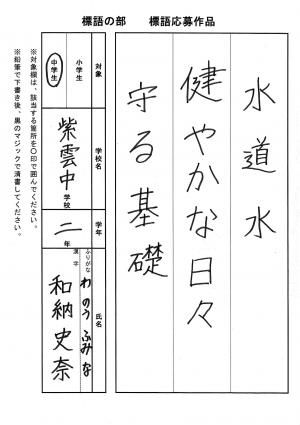 標語の部　標語応募作品
水道水
健やかな日々
守る基礎
対象
小学生
中学生
学校名
紫雲中学校
学年
二年
氏名
ふりがな
わのう ふみな
漢字
和納 史奈
※対象欄は、該当する箇所を〇印で囲んでください。
※鉛筆で下書き後、黒のマジックで清書してください。